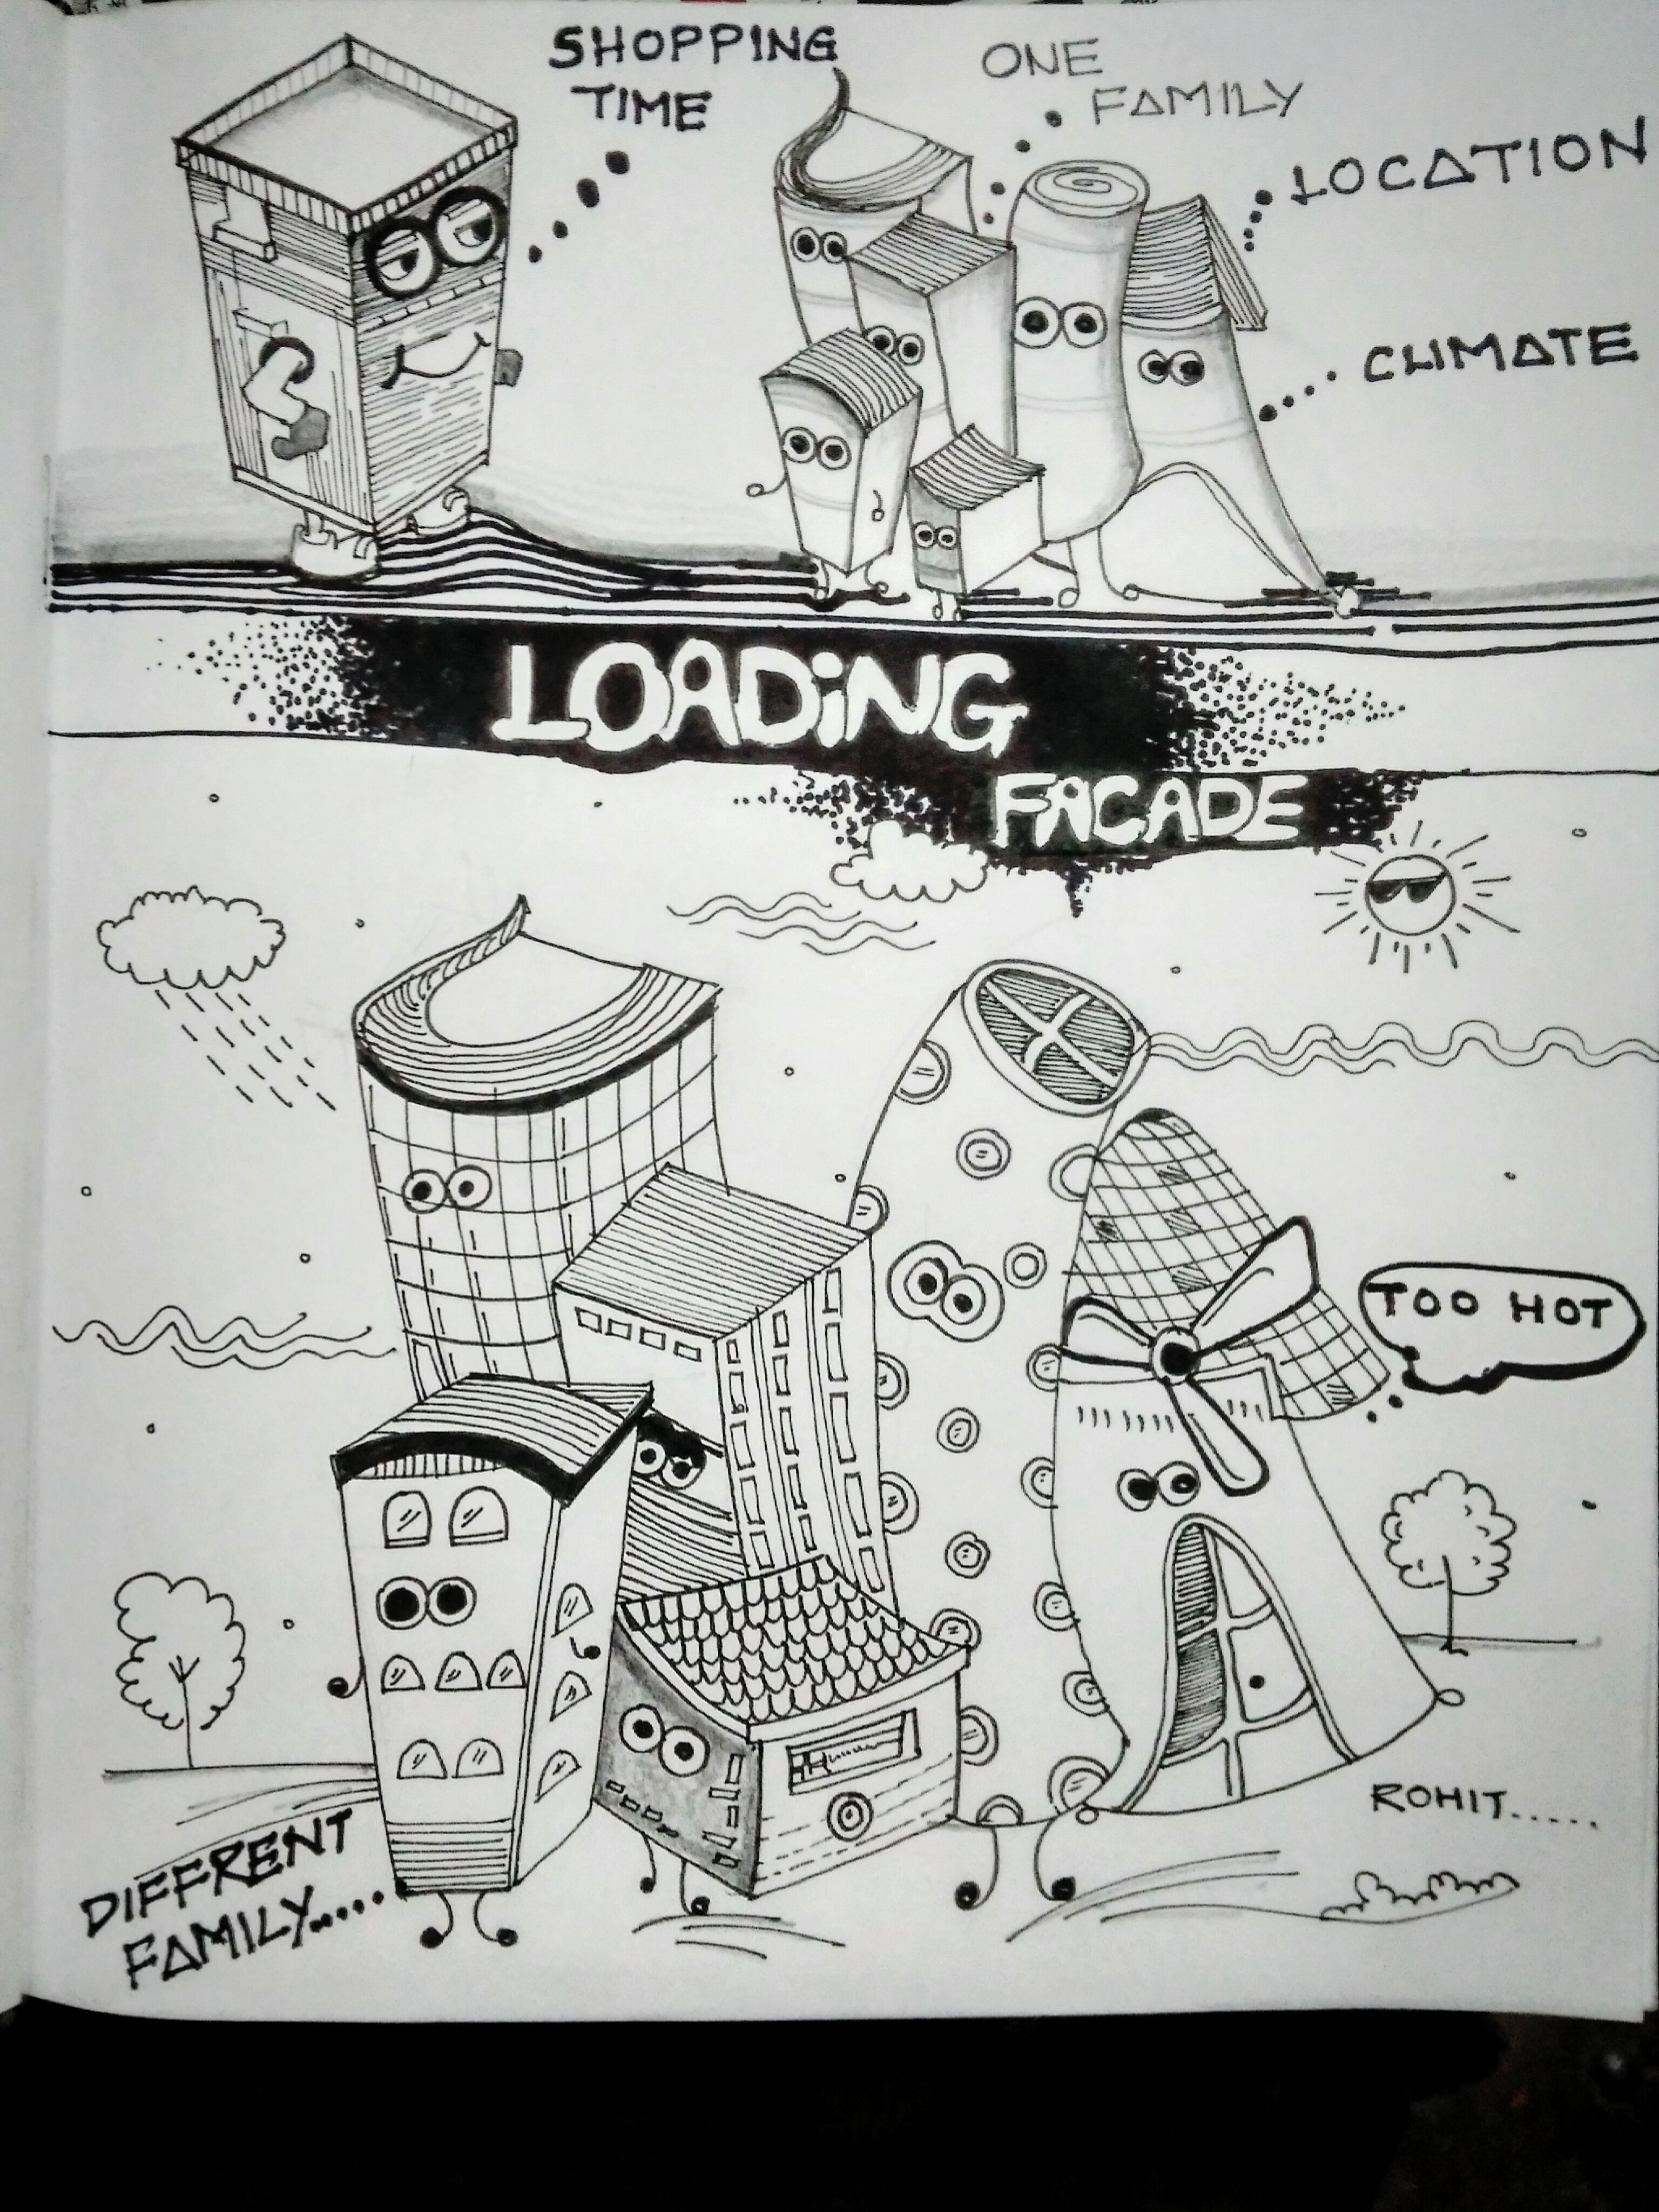 SHOPPING
TIME
ONE
FAMILY
LOCATION
CLIMATE
LOADiNG
FACADE
TOO HOT
ROHIT.....
DIFFRENT
FAMILY.....